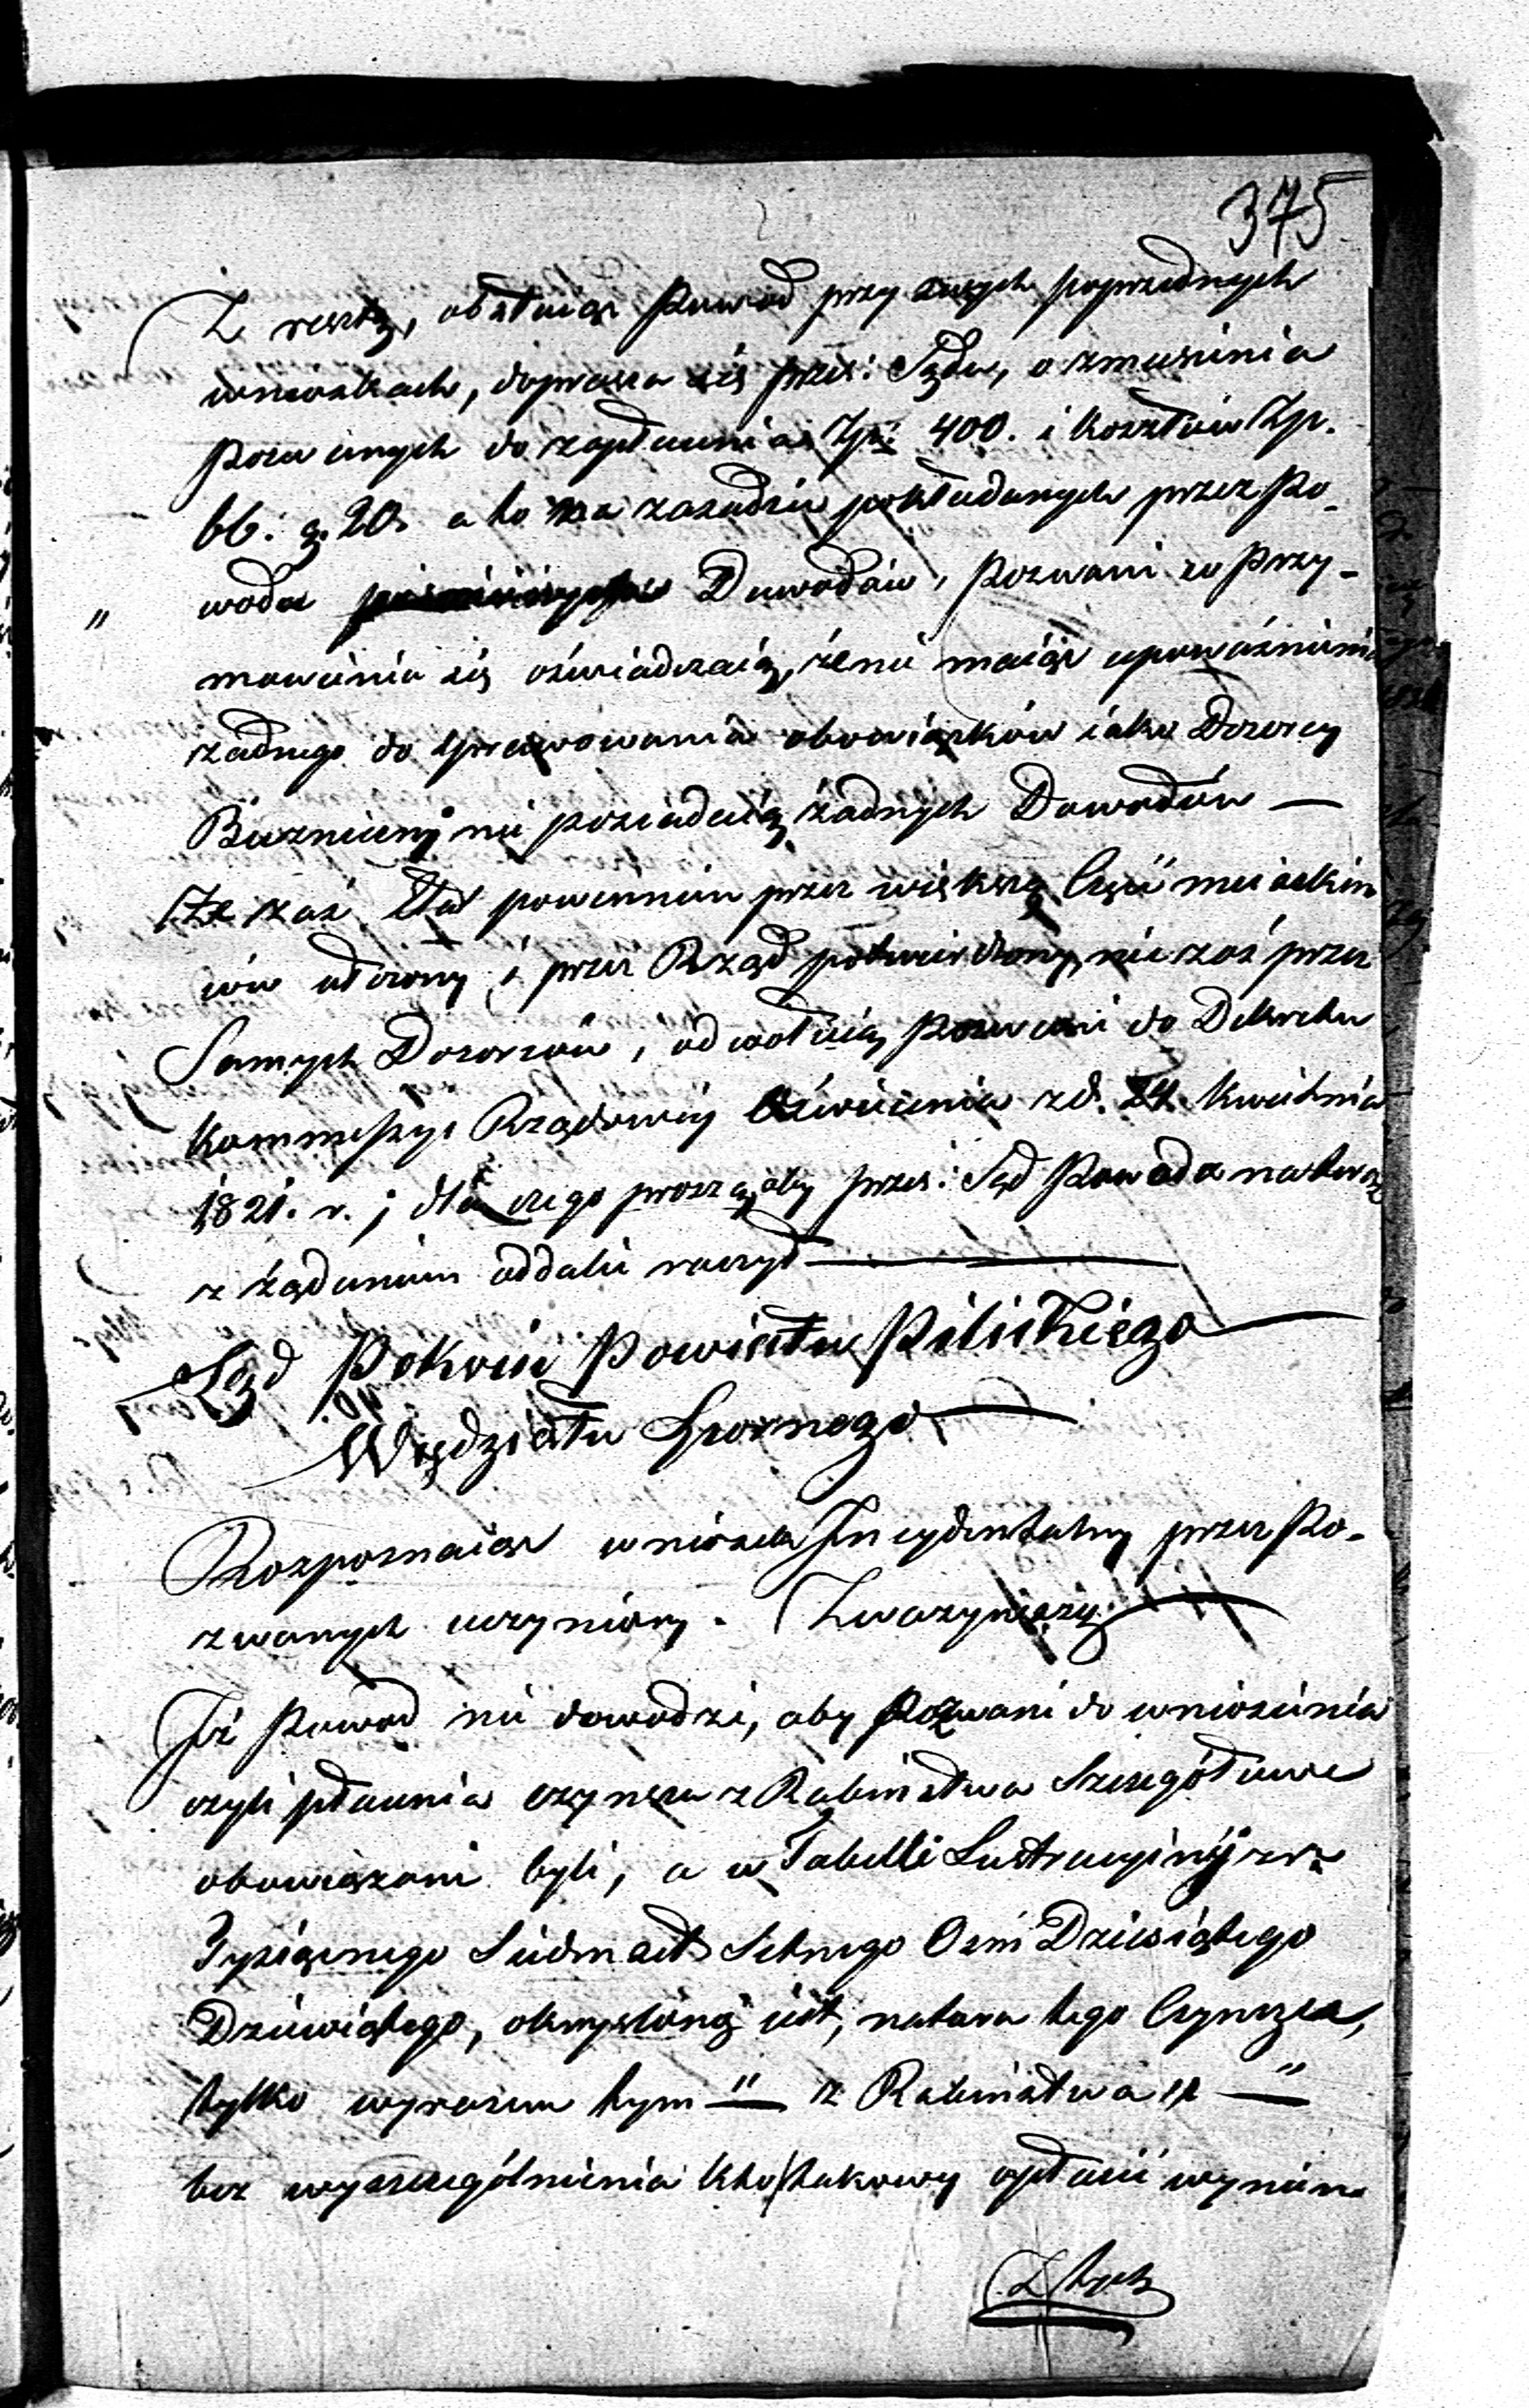 375
Z resztą, obstaiąc Powod przy swych poprzednych
wnioskach, doprasza się prześ: Sądu, o zmuszenia
Pozwanych do zapłacenia Zp: 400. i kosztów Zp.
66: g. 20. a to na zasadzie pokładanych przez Po-
" woda Dowodów, Pozwani w Przy-
mowieniu się oświadczaią, że nie maiąc upoważnienia
żadnego do sprawowania obowiązków iako Dozorcy
Bużniczni nie posiadaią żadnych Dowodów —
Że zaś Etat powinnien przez większą Część mieszkin
ców ułożony i przez Rząd potwierdzony, nie zaś przez
Samych Dozorców, odwołuią Pozwani do Dekretu
Kommissyi Rządowéy Oświecenia z d. 24. Kwietnia
1821. r.; dla czego proszą, aby prześ: Sąd Powoda na teraz
z żądaniem oddalić raczył —
Sąd Pokoiu Powiatu Pilickiego —
Wydziału Spornego —
Rozpoznaiąc wniosek Incydentalny przez Po-
zwanych uczyniony. Zważywszy: —
Iż Powod nie dowodzi, aby Pozwani do wniesienia
czyli płacenia czynszu z Rabinstwa Szczegółowe
obowiązani byli, a w Tabelli Lustracyinéy z r.
Tysiącznego Siedmset Setnego Ośm Dziesiątego
Dziewiątego, okryśloną iest, natura tego Czynszu,
tylko wyrazem tym " — z Rabinstwa — "
bez wyszczególnienia kto takowy opłacić winien